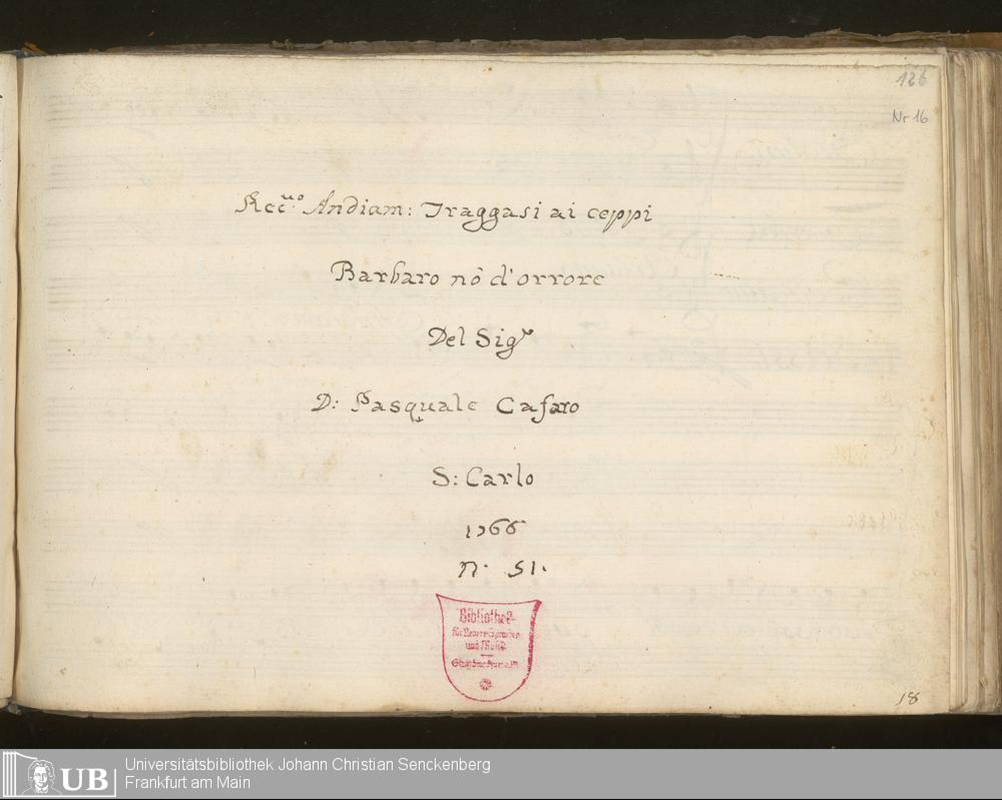 126
Nr 16
Rec.vo Andiam: Traggasi ai ceppi
Barbaro nō d'orrore
Del Sigr
D: Pasquale Cafaro
S: Carlo
1766
N. 51.
Bibliothek
für Neuere Sprachen
und Musik
18
UB
Universitätsbibliothek Johann Christian Senckenberg
Frankfurt am Main